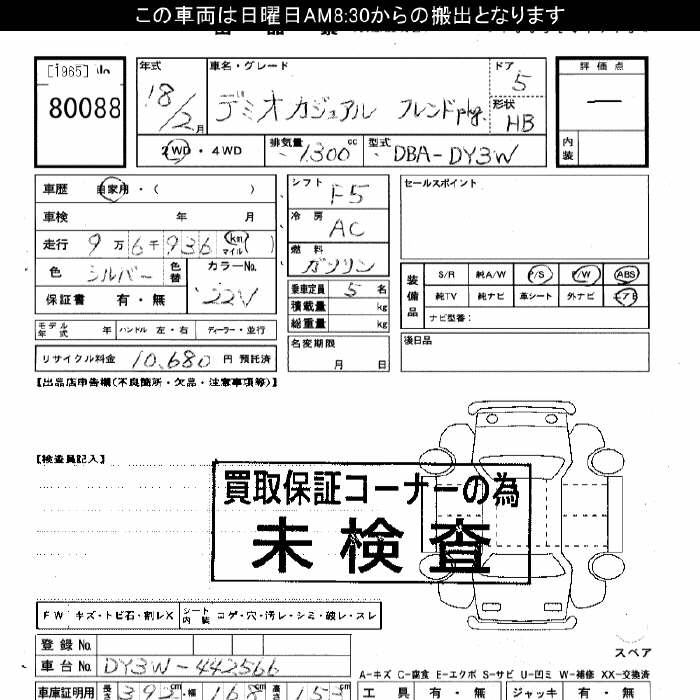 この車両は日曜日AM8:30からの搬出となります
[1965]
80088
年式
18/2月
車名・グレード
デミオ カジュアル フレンドpkg.
ドア
5
形状
HB
評価点
―
内装
2WD・4WD
排気量 1300cc
型式 DBA-DY3W
車歴 自家用・( )
車検 年 月
走行 9万6千936 (km マイル)
色 シルバー 色替
カラーNo. 22V
保証書 有・無
モデル年式 年 ハンドル 左・右 ディーラー・並行
リサイクル料金 10,680 円 預託済
シフト F5
冷房 AC
燃料 ガソリン
乗車定員 5 名
積載量 kg
総重量 kg
名変期限
月 日
セールスポイント
装備品
S/R 純A/W P/S P/W ABS
純TV 純ナビ 革シート 外ナビ エアB
ナビ型番:
後日品
【出品店申告欄(不良箇所・欠品・注意事項等)】
【検査員記入】
買取保証コーナーの為
未検査
FW キズ・トビ石・割レX シート内装 コゲ・穴・汚レ・シミ・破レ・スレ
スペア
登録No.
車台No. DY3W-442566
A-キズ C-腐食 E-エクボ S-サビ U-凹ミ W-補修 XX-交換済
車庫証明用 長さ 392cm 幅 168cm 高さ 153
工具 有・無 ジャッキ 有・無